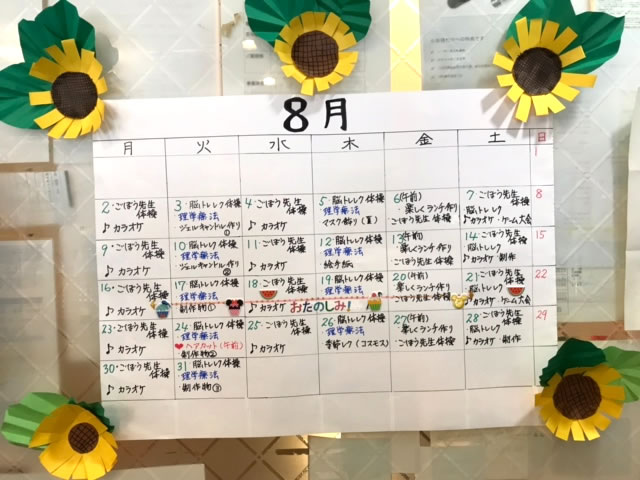 8月
月 火 水 木 金 土 日
1
2・ごぼう先生
体操
♪カラオケ
3・脳トレレク体操
理学療法
ジェルキャンドル作り
①
4・ごぼう先生
体操
♪カラオケ
5・脳トレレク体操
理学療法
マスク飾り(夏)
6(午前)
・楽しくランチ作り
ごぼう先生体操
7・ごぼう先生
体操
脳トレレク
♪カラオケ・ゲーム大会
8
9・ごぼう先生
体操
♪カラオケ
10・脳トレレク体操
理学療法
ジェルキャンドル作り
②
11・ごぼう先生
体操
♪カラオケ
12・脳トレレク体操
理学療法
絵手紙
13(午前)
・楽しくランチ作り
ごぼう先生体操
14・ごぼう先生
体操
脳トレレク
♪カラオケ・制作
15
16・ごぼう先生
体操
♪カラオケ
17・脳トレレク体操
理学療法
制作物①
18・ごぼう先生
体操
♪カラオケ
おたのしみ!
19・脳トレレク体操
理学療法
20(午前)
楽しくランチ作り
ごぼう先生体操
21・ごぼう先生
体操
脳トレレク
♪カラオケ・ゲーム大会
22
23・ごぼう先生
体操
♪カラオケ
24・脳トレレク体操
理学療法
❤ヘアカット(午前)
制作物②
25・ごぼう先生
体操
♪カラオケ
26・脳トレレク体操
理学療法
季節レク(コスモス)
27(午前)
・楽しくランチ作り
・ごぼう先生体操
28・ごぼう先生
体操
脳トレレク
♪カラオケ・制作
29
30・ごぼう先生
体操
♪カラオケ
31・脳トレレク体操
・理学療法
・制作物③